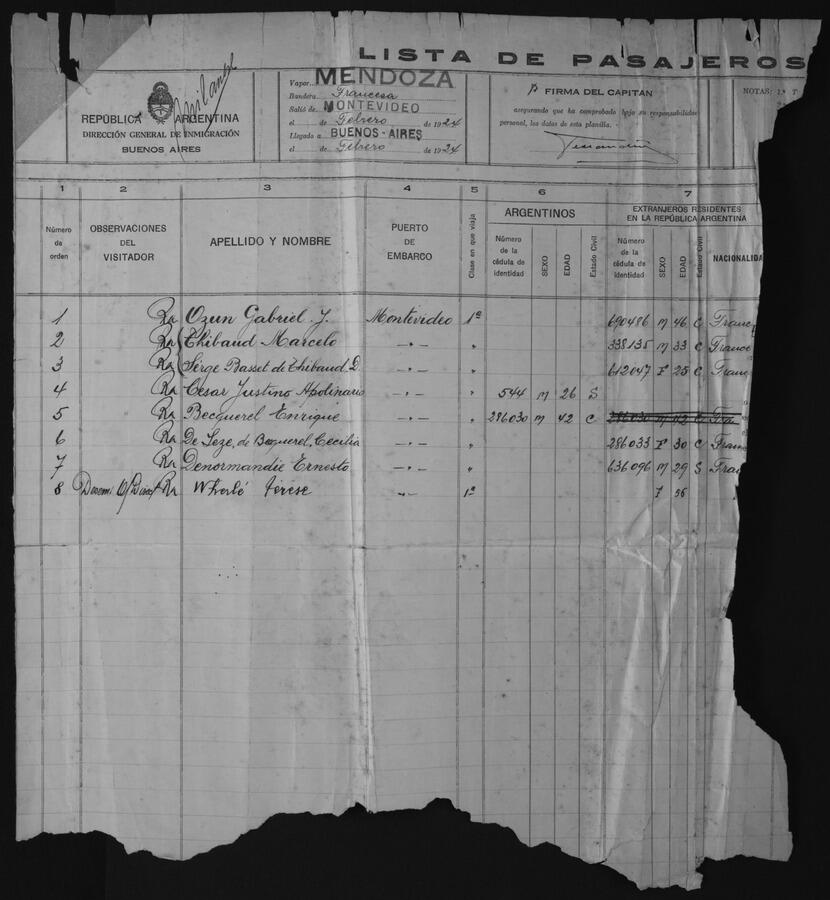 LISTA DE PASAJEROS
REPÚBLICA ARGENTINA
DIRECCIÓN GENERAL DE INMIGRACIÓN
BUENOS AIRES
Vapor MENDOZA
Bandera Francesa
Salió de MONTEVIDEO
el de Febrero de 1924
Llegado a BUENOS-AIRES
el de Febrero de 1924
FIRMA DEL CAPITAN
asegurando que ha comprobado bajo su responsabilidad
personal, los datos de esta planilla.
NOTAS: 1.ª T
1 2 3 4 5 6 7
Número de orden
OBSERVACIONES DEL VISITADOR
APELLIDO Y NOMBRE
PUERTO DE EMBARCO
Clase en que viaja
ARGENTINOS
Número de la cédula de identidad SEXO EDAD Estado Civil
EXTRANJEROS RESIDENTES
EN LA REPÚBLICA ARGENTINA
Número de la cédula de identidad SEXO EDAD Estado Civil NACIONALIDA
1 Ra Ozun Gabriel J. Montevideo 1ª 690486 M 46 C Franc
2 Ra Thibaud Marcelo -"- " 338135 M 33 C France
3 Ra Serge Basset de Thibaud D. -"- " 612047 F 25 C Franç
4 Ra Cesar Justino Apolinario -"- " 544 M 26 S
5 Ra Becquerel Enrique -"- " 286030 M 42 C 286030 M 42 C Fra
6 Ra De Seze, de Becquerel, Cecilia -"- " 286033 F 30 C Fran
7 Ra Denormandie Ernesto -"- " 636096 M 29 S Fra
8 Ra Wherlé Térese -"- 1ª F 56